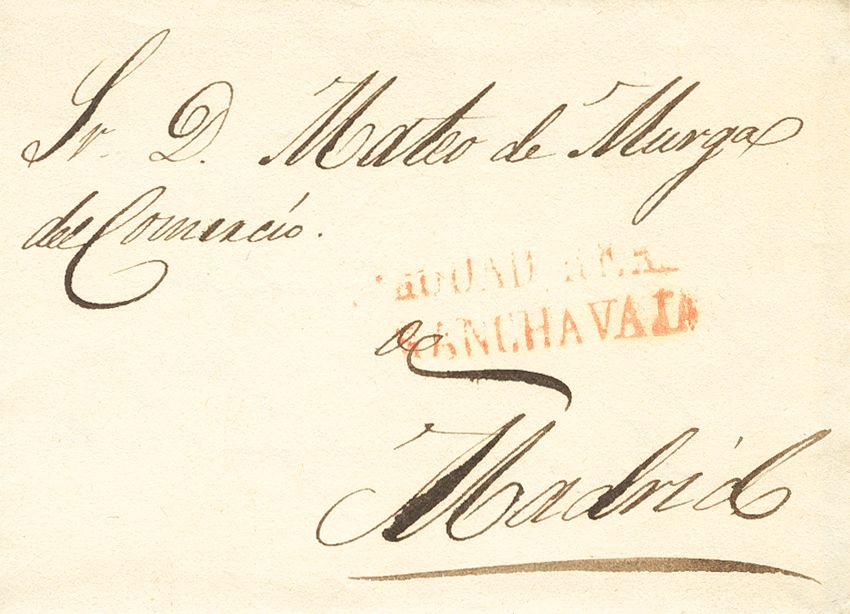 Sr. D. Mateo de Murga
del Comercio.
CIUDAD REAL
MANCHA VAJA
a
Madrid